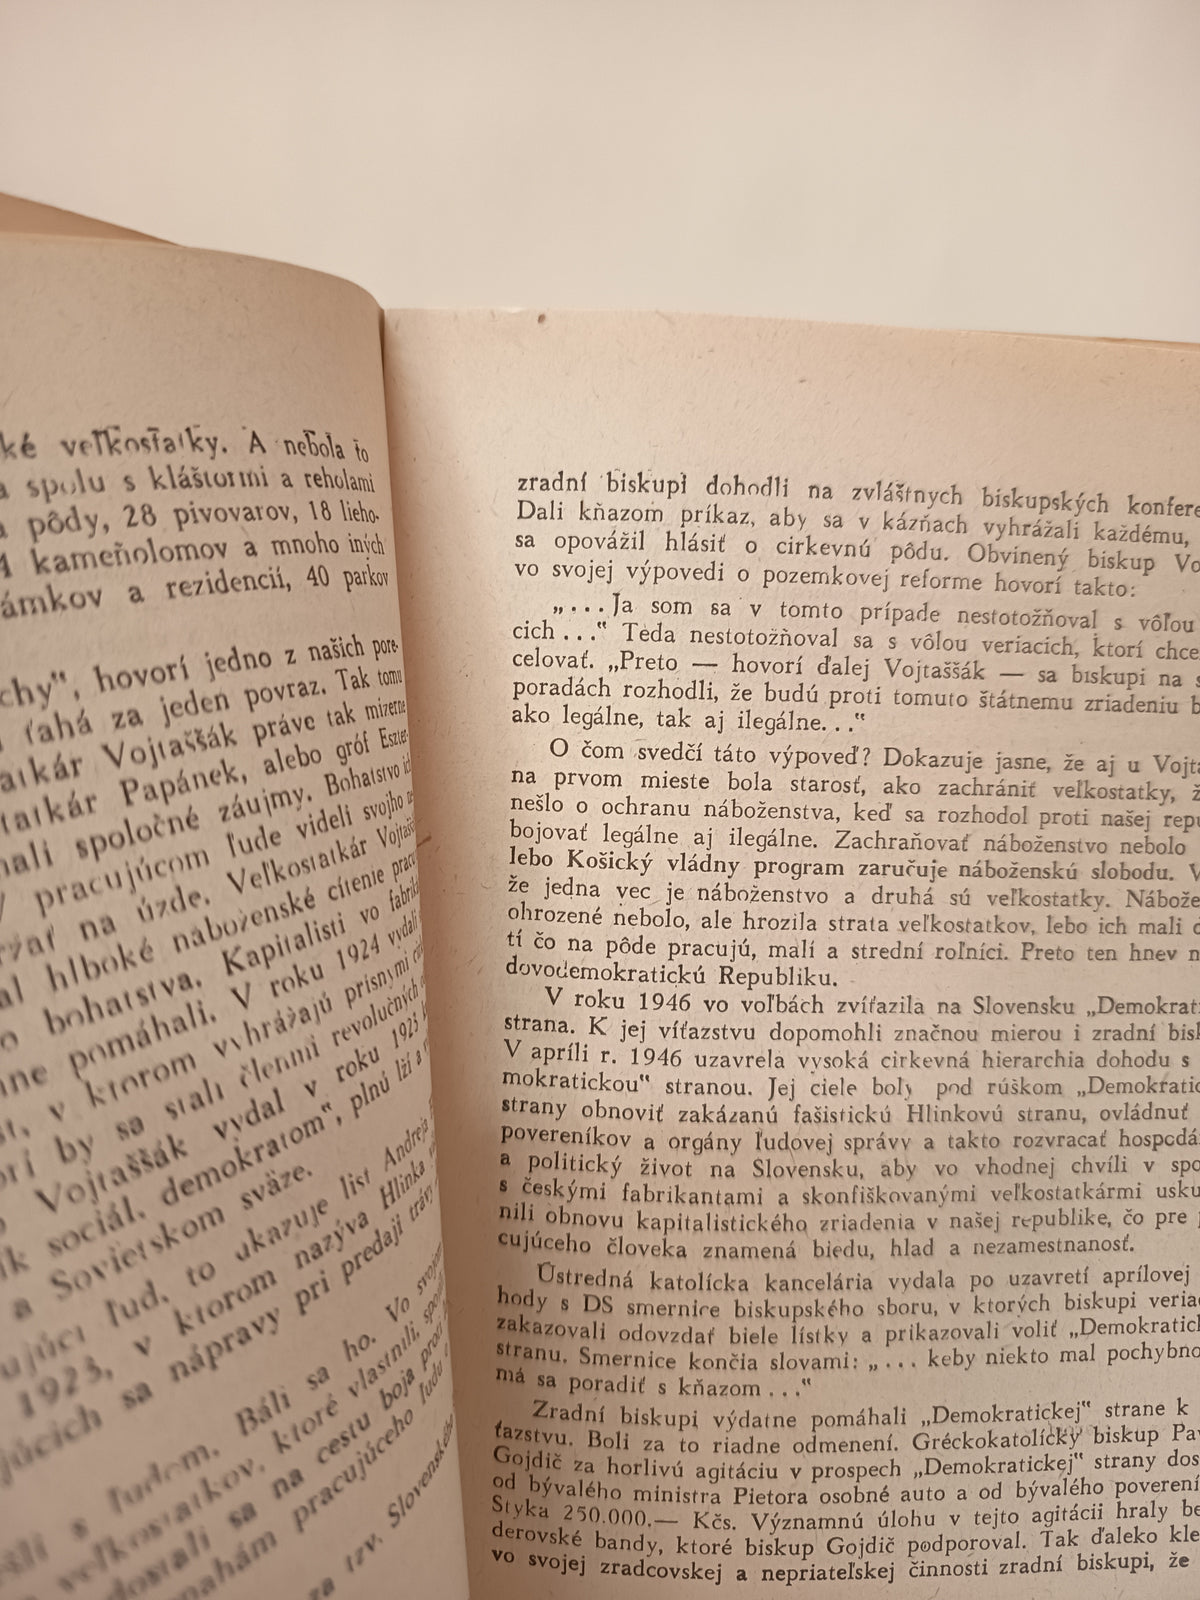 ké veľkostatky. A nebola to
a spolu s kláštormi a reholami
pôdy, 28 pivovarov, 18 lieho-
4 kameňolomov a mnoho iných
ámkov a rezidencií, 40 parkov
chy", hovorí jedno z našich pore-
ťahá za jeden povraz. Tak tomu
atkár Vojtaššák práve tak mizerne
tatkár Papánek, alebo gróf Eszter-
mali spoločné záujmy. Bohatstvo ich
pracujúcom ľude videli svojho
ržať na úzde. Veľkostatkár Vojtašš
al hlboké náboženské cítenie pracu
o bohatstva. Kapitalisti vo fabrika
ne pomáhali. V roku 1924 vydali
st, v ktorom vyhrážajú prísnymi
orí by sa stali členmi revolučných
Vojtaššák vydal v roku 1925
ík sociál. demokratom", plnú lží a
a Sovietskom sväze.
ujúci ľud, to ukazuje list Andreja
1923, v ktorom nazýva Hlinka
júcich sa nápravy pri predaji trávy
s ľudom. Báli sa ho. Vo svojom
veľkostatkov, ktoré vlastnili,
dostali sa na cestu boja proti
snahám pracujúceho ľudu
za tzv. Slovenského
zradní biskupi dohodli na zvláštnych biskupských konfere
Dali kňazom príkaz, aby sa v kázňach vyhrážali každému,
sa opovážil hlásiť o cirkevnú pôdu. Obvinený biskup Vo
vo svojej výpovedi o pozemkovej reforme hovorí takto:
„...Ja som sa v tomto prípade nestotožňoval s vôľou
cich..." Teda nestotožňoval sa s vôľou veriacich, ktorí chce
celovať. „Preto — hovorí ďalej Vojtaššák — sa biskupi na s
poradách rozhodli, že budú proti tomuto štátnemu zriadeniu b
ako legálne, tak aj ilegálne..."
O čom svedčí táto výpoveď? Dokazuje jasne, že aj u Vojta
na prvom mieste bola starosť, ako zachrániť veľkostatky, ž
nešlo o ochranu náboženstva, keď sa rozhodol proti našej repu
bojovať legálne aj ilegálne. Zachraňovať náboženstvo nebolo
lebo Košický vládny program zaručuje náboženskú slobodu. V
že jedna vec je náboženstvo a druhá sú veľkostatky. Nábože
ohrozené nebolo, ale hrozila strata veľkostatkov, lebo ich mali d
tí čo na pôde pracujú, malí a strední roľníci. Preto ten hnev n
dovodemokratickú Republiku.
V roku 1946 vo voľbách zvíťazila na Slovensku „Demokrati
strana. K jej víťazstvu dopomohli značnou mierou i zradní bisk
V apríli r. 1946 uzavrela vysoká cirkevná hierarchia dohodu s
mokratickou" stranou. Jej ciele boly pod rúškom „Demokratic
strany obnoviť zakázanú fašistickú Hlinkovú stranu, ovládnuť
povereníkov a orgány ľudovej správy a takto rozvracať hospodá
a politický život na Slovensku, aby vo vhodnej chvíli v spo
s českými fabrikantami a skonfiškovanými veľkostatkármi usku
nili obnovu kapitalistického zriadenia v našej republike, čo pre p
cujúceho človeka znamená biedu, hlad a nezamestnanosť.
Ústredná katolícka kancelária vydala po uzavretí aprílovej
hody s DS smernice biskupského sboru, v ktorých biskupi veria
zakazovali odovzdať biele lístky a prikazovali voliť „Demokratick
stranu. Smernice končia slovami: „... keby niekto mal pochybno
má sa poradiť s kňazom..."
Zradní biskupi výdatne pomáhali „Demokratickej" strane k
ťazstvu. Boli za to riadne odmenení. Gréckokatolícky biskup Pav
Gojdič za horlivú agitáciu v prospech „Demokratickej" strany dos
od bývalého ministra Pietora osobné auto a od bývalého poverení
Styka 250.000.— Kčs. Významnú úlohu v tejto agitácii hraly be
derovské bandy, ktoré biskup Gojdič podporoval. Tak ďaleko kle
vo svojej zradcovskej a nepriateľskej činnosti zradní biskupi, že